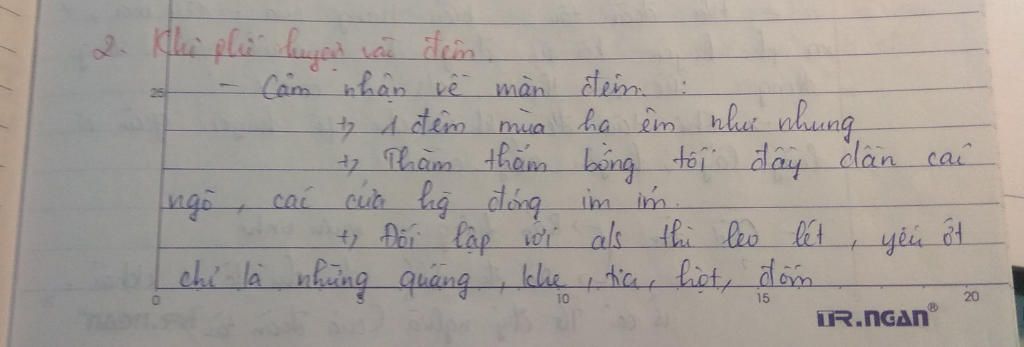 2. Khi phố huyện vào đêm
- Cảm nhận về màn đêm :
+, 1 đêm mùa hạ êm như nhung
+, Thăm thẳm bóng tối đầy dần các
ngõ, các cửa hg đóng im ỉm.
+, Đối lập với a/s thì leo lét, yếu ớt
chỉ là những quầng, khe, tia, hột, đốm
25
0 5 10 15 20
TR.NGAN®